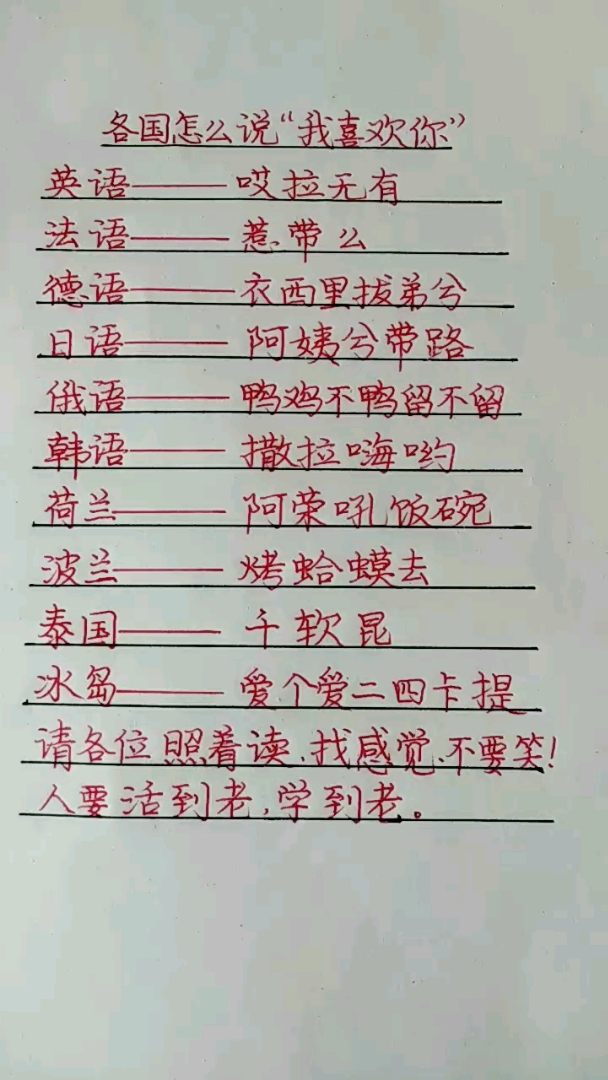 各国怎么说“我喜欢你”
英语——哎拉无有
法语——惹带么
德语——衣西里拔弟兮
日语——阿姨兮带路
俄语——鸭鸡不鸭留不留
韩语——撒拉嗨哟
荷兰——阿荣吼饭碗
波兰——烤蛤蟆去
泰国——千软昆
冰岛——爱个爱二四卡提
请各位照着读、找感觉、不要笑!
人要活到老,学到老。